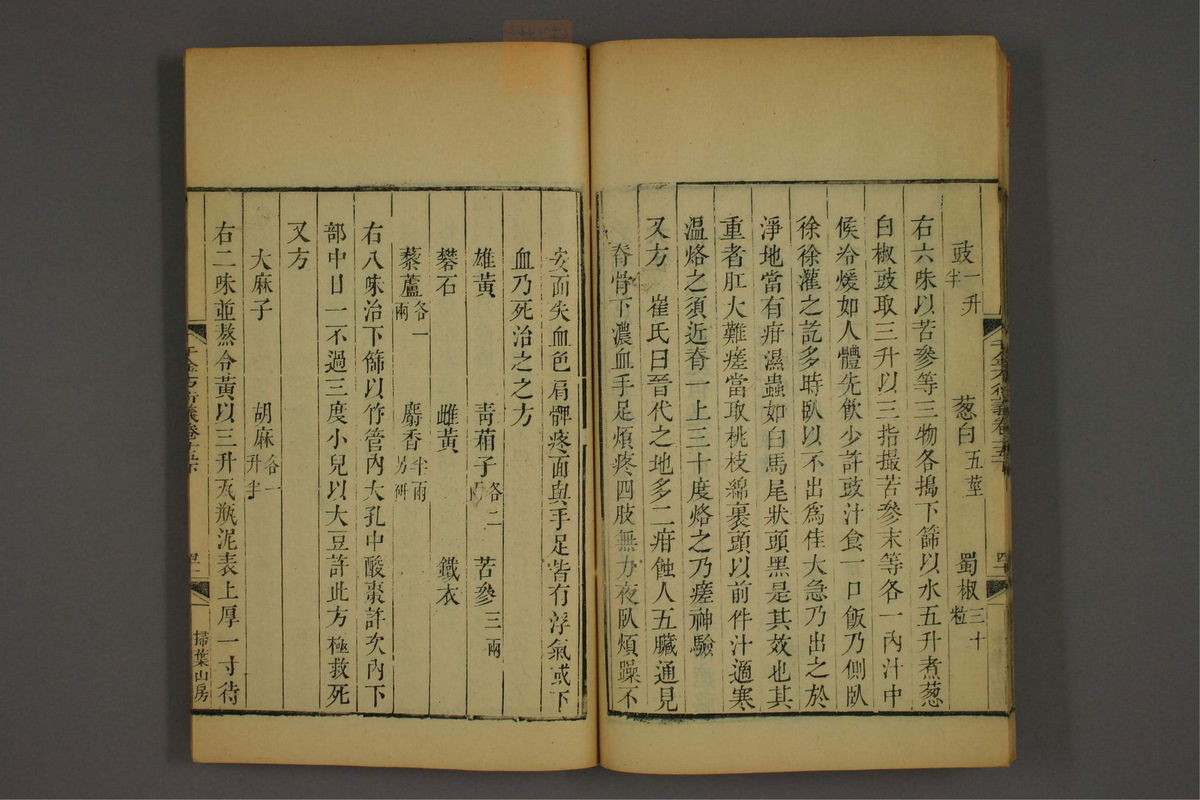 豉一升半 葱白五莖 蜀椒三十粒
右六味以苦參等三物各搗下篩以水五升煮葱
白椒豉取三升以三指撮苦參末等各一內汁中
候冷煖如人體先飲少許豉汁食一口飯乃側臥
徐徐灌之訖多時臥以不出爲佳大急乃出之於
淨地當有疳濕蟲如白馬尾狀頭黑是其效也其
重者肛大難瘥當取桃枝綿裹頭以前件汁適寒
温烙之須近脊一上三十度烙之乃瘥神驗
又方 崔氏曰晉代之地多二疳蝕人五臟通見
脊骨下濃血手足煩疼四肢無力夜臥煩躁不
安面失血色肩髀疼面與手足皆有浮氣或下
血乃死治之之方
雄黃 靑葙子各二兩 苦參三兩
礬石 雌黃 鐵衣
藜蘆各一兩 麝香半兩另硏
右八味治下篩以竹管內大孔中酸棗許次內下
部中日一不過三度小兒以大豆許此方極救死
又方
大麻子 胡麻各一升半
右二味並熬令黃以三升瓦瓶泥表上厚一寸待
千金方衍義卷五下
掃葉山房